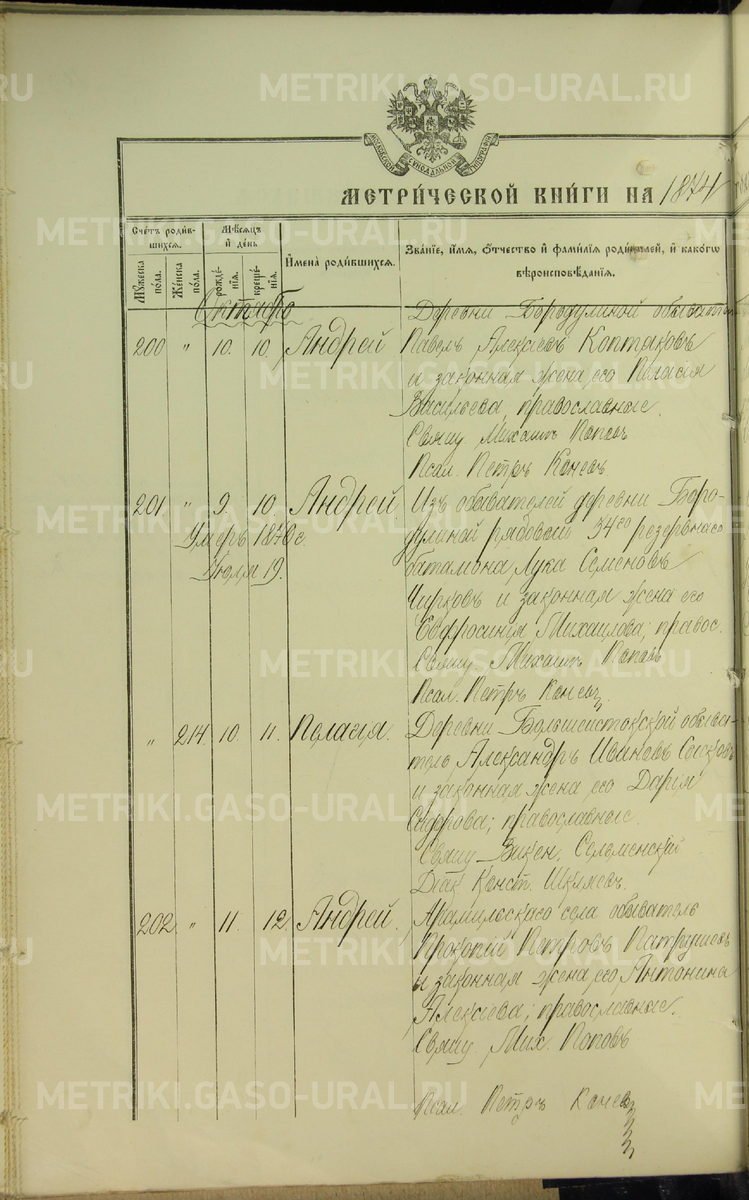 METRIKI.GASO-URAL.RU
МОСКОВСКОЙ СУНОДАЛЬНОЙ ТИПОГРАФІИ
МЕТРИЧЕСКОЙ КНИГИ НА 1874
Счетъ родив-
шихся.
Мужеска пола.
Женска пола.
Мѣсяцъ
и день
рожде-
нія.
креще-
нія.
Имена родившихся.
Званіе, имя, отчество и фамилія родителей, и какогѡ
вѣроисповѣданія.
Октябрь
Деревни Бородулиной обыватель
200 " 10. 10. Андрей Павелъ Алексѣевъ Коптяковъ
и законная жена его Пелагія
Васильева, православные.
Свящ. Михаилъ Поповъ
Псал. Петръ Каневъ
201 " 9. 10. Андрей Изъ обывателей деревни Боро-
дулиной рядовой 34го резервнаго
баталіона Лука Семеновъ
Умеръ 1876 г.
Іюля 19.
Чирковъ и законная жена его
Евфросинія Михаилова; правос.
Свящ. Михаилъ Поповъ
Псал. Петръ Каневъ
" 214. 10 11. Пелагія. Деревни Большеистокской обыва-
тель Александръ Ивановъ
и законная жена его Дарія
Сидорова; православные.
Свящ. Викен. Сельменскій
Діак. Конст. Шиляевъ.
202 " 11. 12. Андрей. Арамильскаго села обыватель
Прокопій Петровъ Патрушевъ
и законная жена его Антонина
Алексѣева; православные.
Свящ. Мих. Поповъ
Псал. Петръ Каневъ